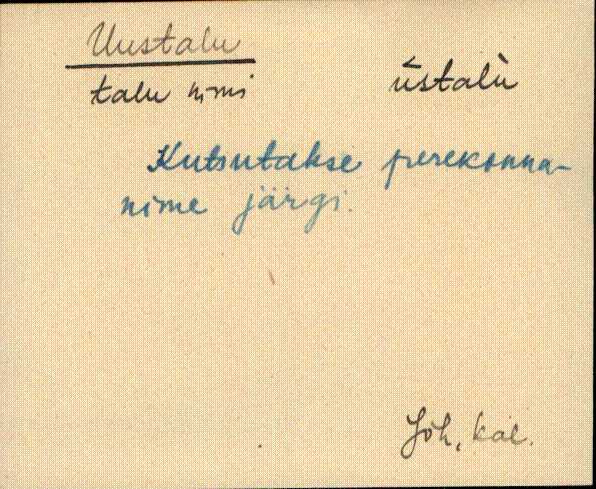 Uustalu
talu nimi ūstalù
Kutsutakse perekonna-
nime järgi.
Jõh, kal.